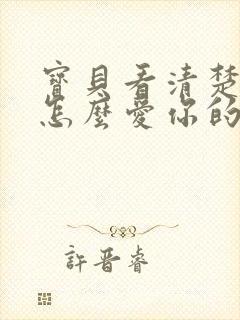 寶貝看清楚
怎麼愛你的
許晋睿